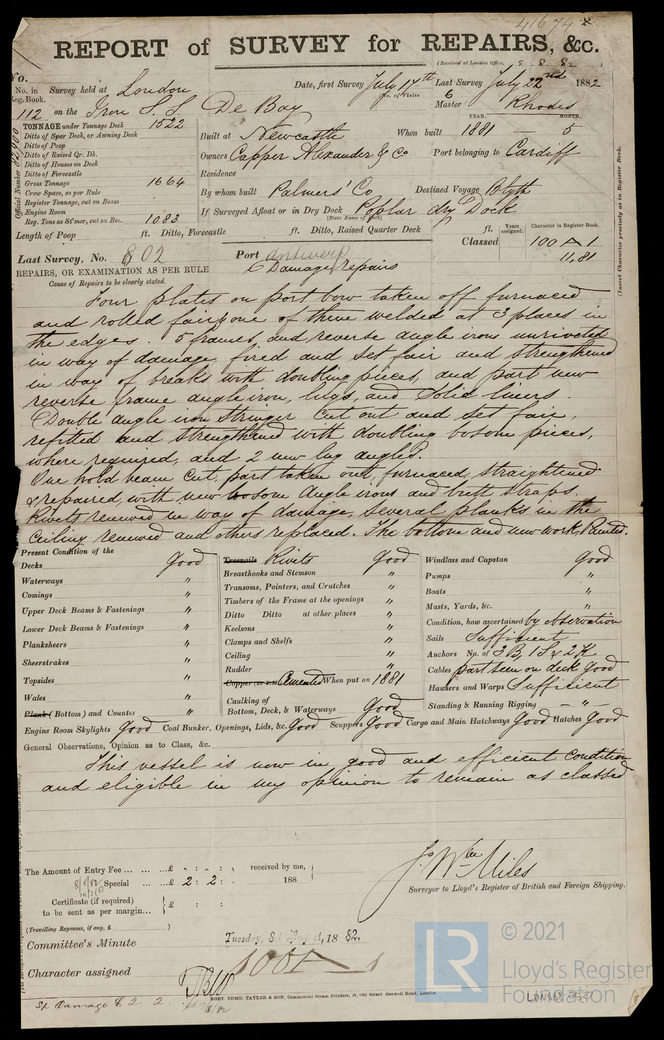 41674
REPORT of SURVEY for REPAIRS, &c.
(Received at London Office, 8.8.82)
No.
No. in Reg. Book. Survey held at London Date, first Survey July 14th Last Survey July 22nd 1882
(No. of Visits 6
112 on the Iron S.S. De Bay Master Rhodes
TONNAGE under Tonnage Deck 1522
Ditto of Spar Deck, or Awning Deck
Ditto of Poop
Ditto of Raised Qr. Dk.
Ditto of Houses on Deck
Ditto of Forecastle
Gross Tonnage 1664
Crew Space, as per Rule
Register Tonnage, cut on Beam
Engine Room
Reg. Tons as St'mer, cut on Bm. 1083
Official Number
YEAR. MONTH.
Built at Newcastle When built 1881 5
Owners Capper Alexander & Co Port belonging to Cardiff
Residence
By whom built Palmers' Co Destined Voyage Blyth
If Surveyed Afloat or in Dry Dock Poplar dry Dock
(State Name of Dock)
Length of Poop ft. Ditto, Forecastle ft. Ditto, Raised Quarter Deck ft.
Years assigned. Character in Register Book.
Classed 100 A 1
11,81
(Insert Character precisely as in Register Book.
Last Survey, No. 802 Port Antwerp
REPAIRS, OR EXAMINATION AS PER RULE Damage repairs
Cause of Repairs to be clearly stated.
Four plates on port bow taken off furnaced
and rolled fair, one of them welded at 3 places in
the edges. 5 frames, and reverse angle irons unriveted
in way of damage, fired and set fair and strengthened
in way of breaks with doubling pieces, and part new
reverse frame angle iron, lugs, and solid liners.
Double angle iron stringer cut out and set fair,
refitted and strengthened with doubling bosom pieces,
where required, and 2 new lug angles.
One hold beam cut, part taken out, furnaced, straightened
& repaired, with new bosom angle irons and butt straps.
Rivets renewed in way of damage, several planks in the
Ceiling renewed and others replaced. The bottom and new work, Painted.
Present Condition of the
Decks Good
Waterways "
Comings "
Upper Deck Beams & Fastenings "
Lower Deck Beams & Fastenings "
Planksheers "
Sheerstrakes "
Topsides "
Wales "
Plank (Bottom) and Counter "
Treenails Rivets Good
Breasthooks and Stemson "
Transoms, Pointers, and Crutches "
Timbers of the Frame at the openings "
Ditto Ditto at other places "
Keelsons "
Clamps and Shelfs "
Ceiling "
Rudder "
Cemented When put on 1881
Caulking of Bottom, Deck, & Waterways Good
Windlass and Capstan Good
Pumps "
Boats "
Masts, Yards, &c. "
Condition, how ascertained by observation
Sails Sufficient
Anchors No. of 3 B, 1 S & 2 K
Cables part seen on deck good
Hawsers and Warps Sufficient
Standing & Running Rigging "
Engine Room Skylights Good Coal Bunker, Openings, Lids, &c. Good Scuppers Good Cargo and Main Hatchways Good Hatches Good
General Observations, Opinion as to Class, &c.
This vessel is now in good and efficient condition
and eligible in my opinion to remain as classed
The Amount of Entry Fee £ : : received by me,
8/8/82 Special £ 2 : 2 : 188
Certificate (if required) to be sent as per margin £ :
(Travelling Expenses, if any, £ )
Jo. Wm Miles
Surveyor to Lloyd's Register of British and Foreign Shipping.
Committee's Minute Tuesday, 8 August, 18 82.
Character assigned 100 A 1
ROBT. EDMD. TAYLOR & SON, Commercial Steam Printers, 19, Old Street, Goswell Road, London.
Sp. Damage £2 2
© 2021
LR
Lloyd's Register
Foundation